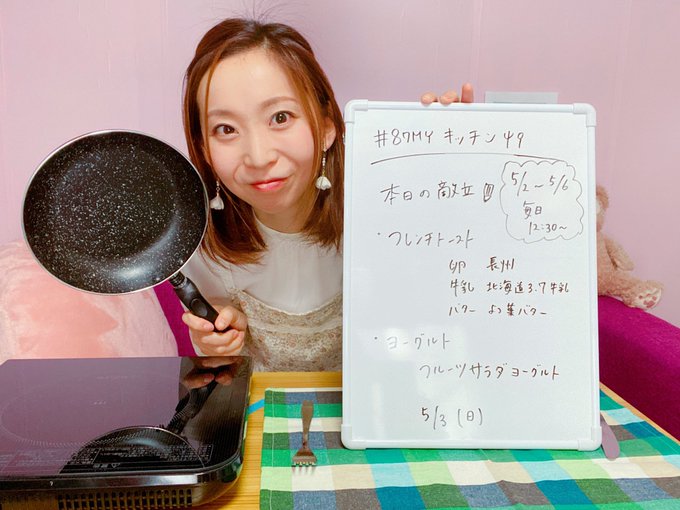 #87MY キッチン 49
本日の献立
5/2～5/6
毎日
12:30～
・フレンチトースト
卵 長州
牛乳 北海道3.7牛乳
バター よつ葉バター
・ヨーグルト
フルーツサラダヨーグルト
5/3(日)